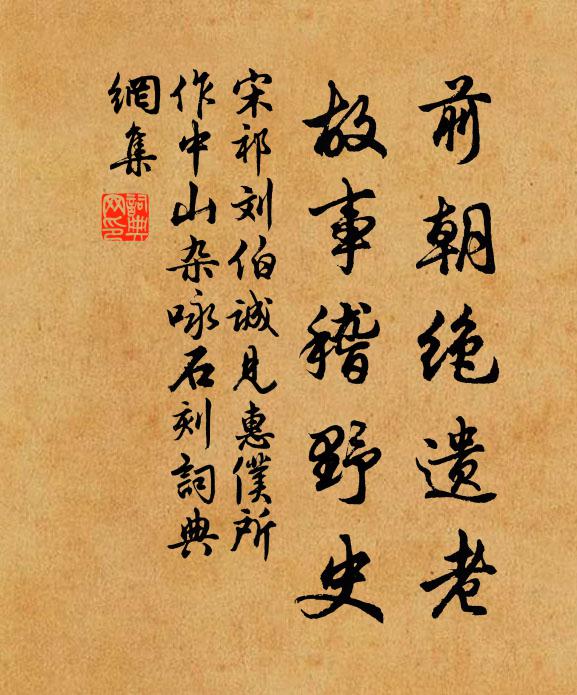 前朝绝遗老
故事稽野史
宋祁刘伯诚见惠僕所
作中山杂咏石刻詞典
網集
詞典网印